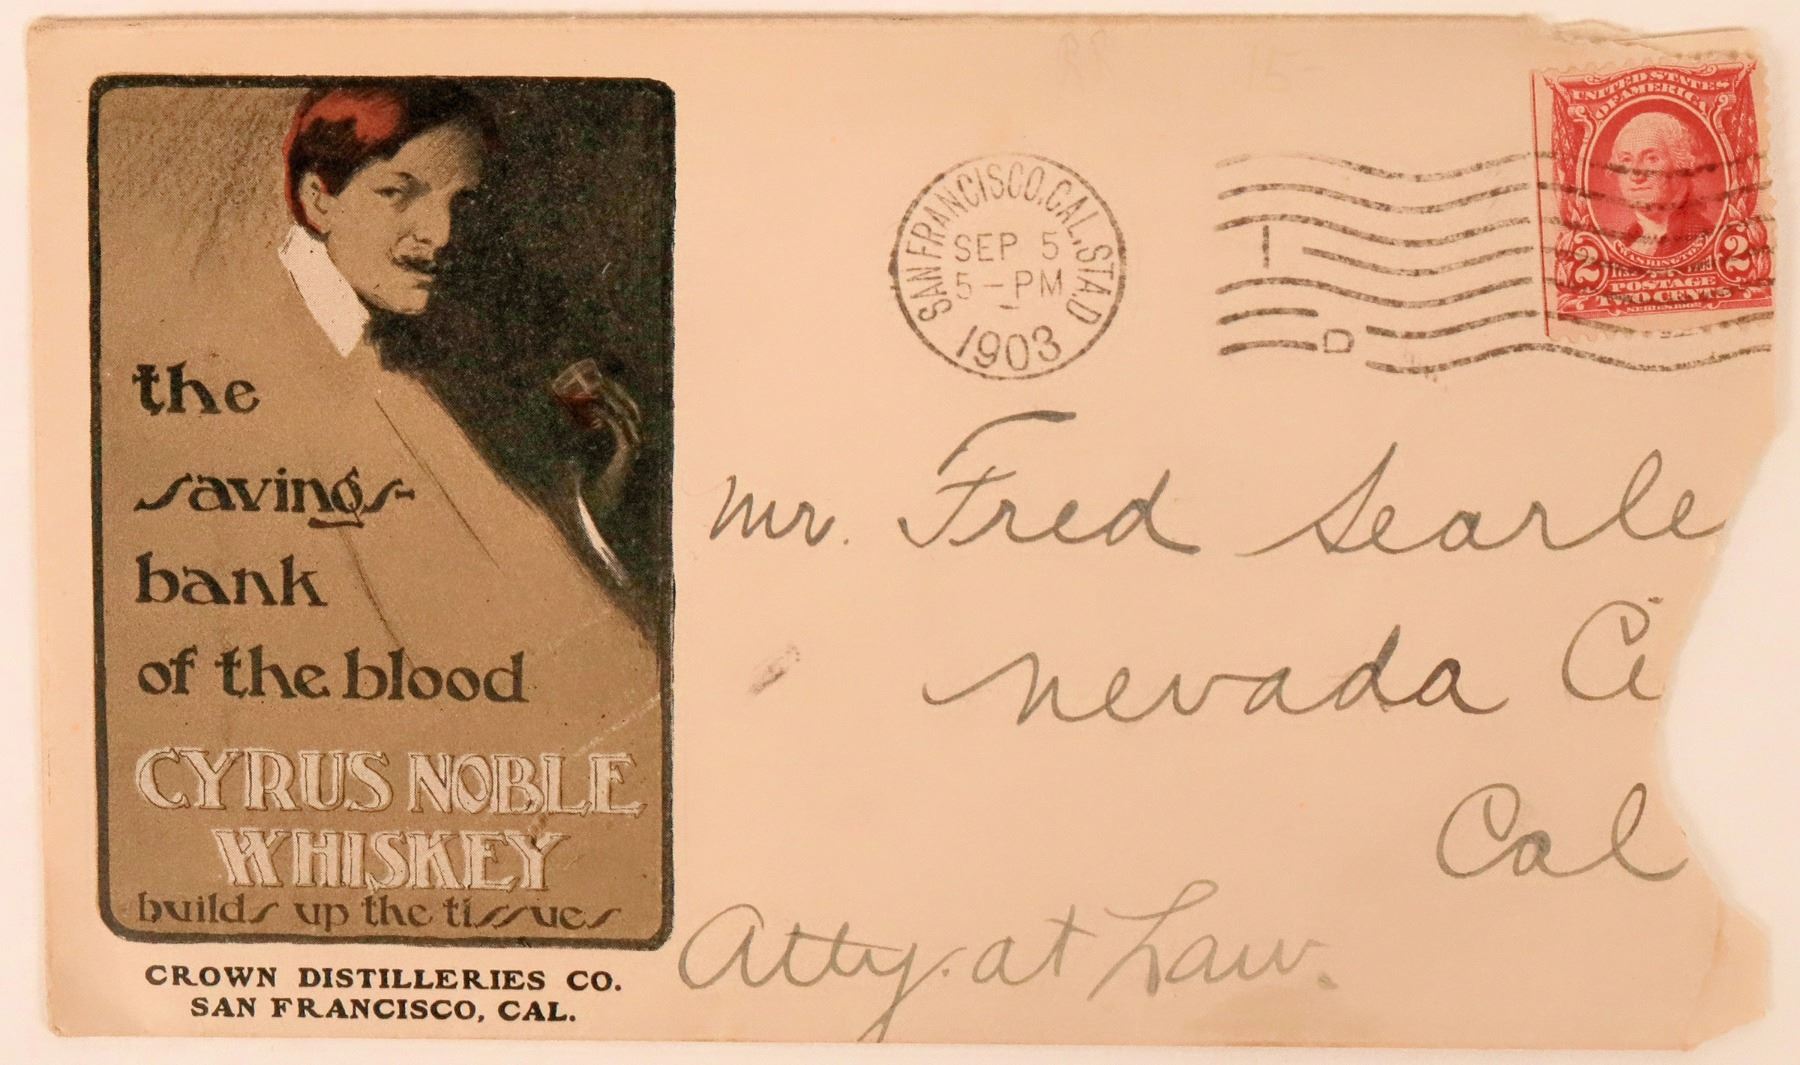 the
savings-
bank
of the blood
CYRUS NOBLE
WHISKEY
builds up the tissues
CROWN DISTILLERIES CO.
SAN FRANCISCO, CAL.
SAN FRANCISCO, CAL. STA D
SEP 5
5-PM
1903
1
D
UNITED STATES
OF AMERICA
WASHINGTON
2 2
POSTAGE
TWO CENTS
SERIES 1902
Mr. Fred Searle
Nevada Ci
Cal
Atty. at Law.